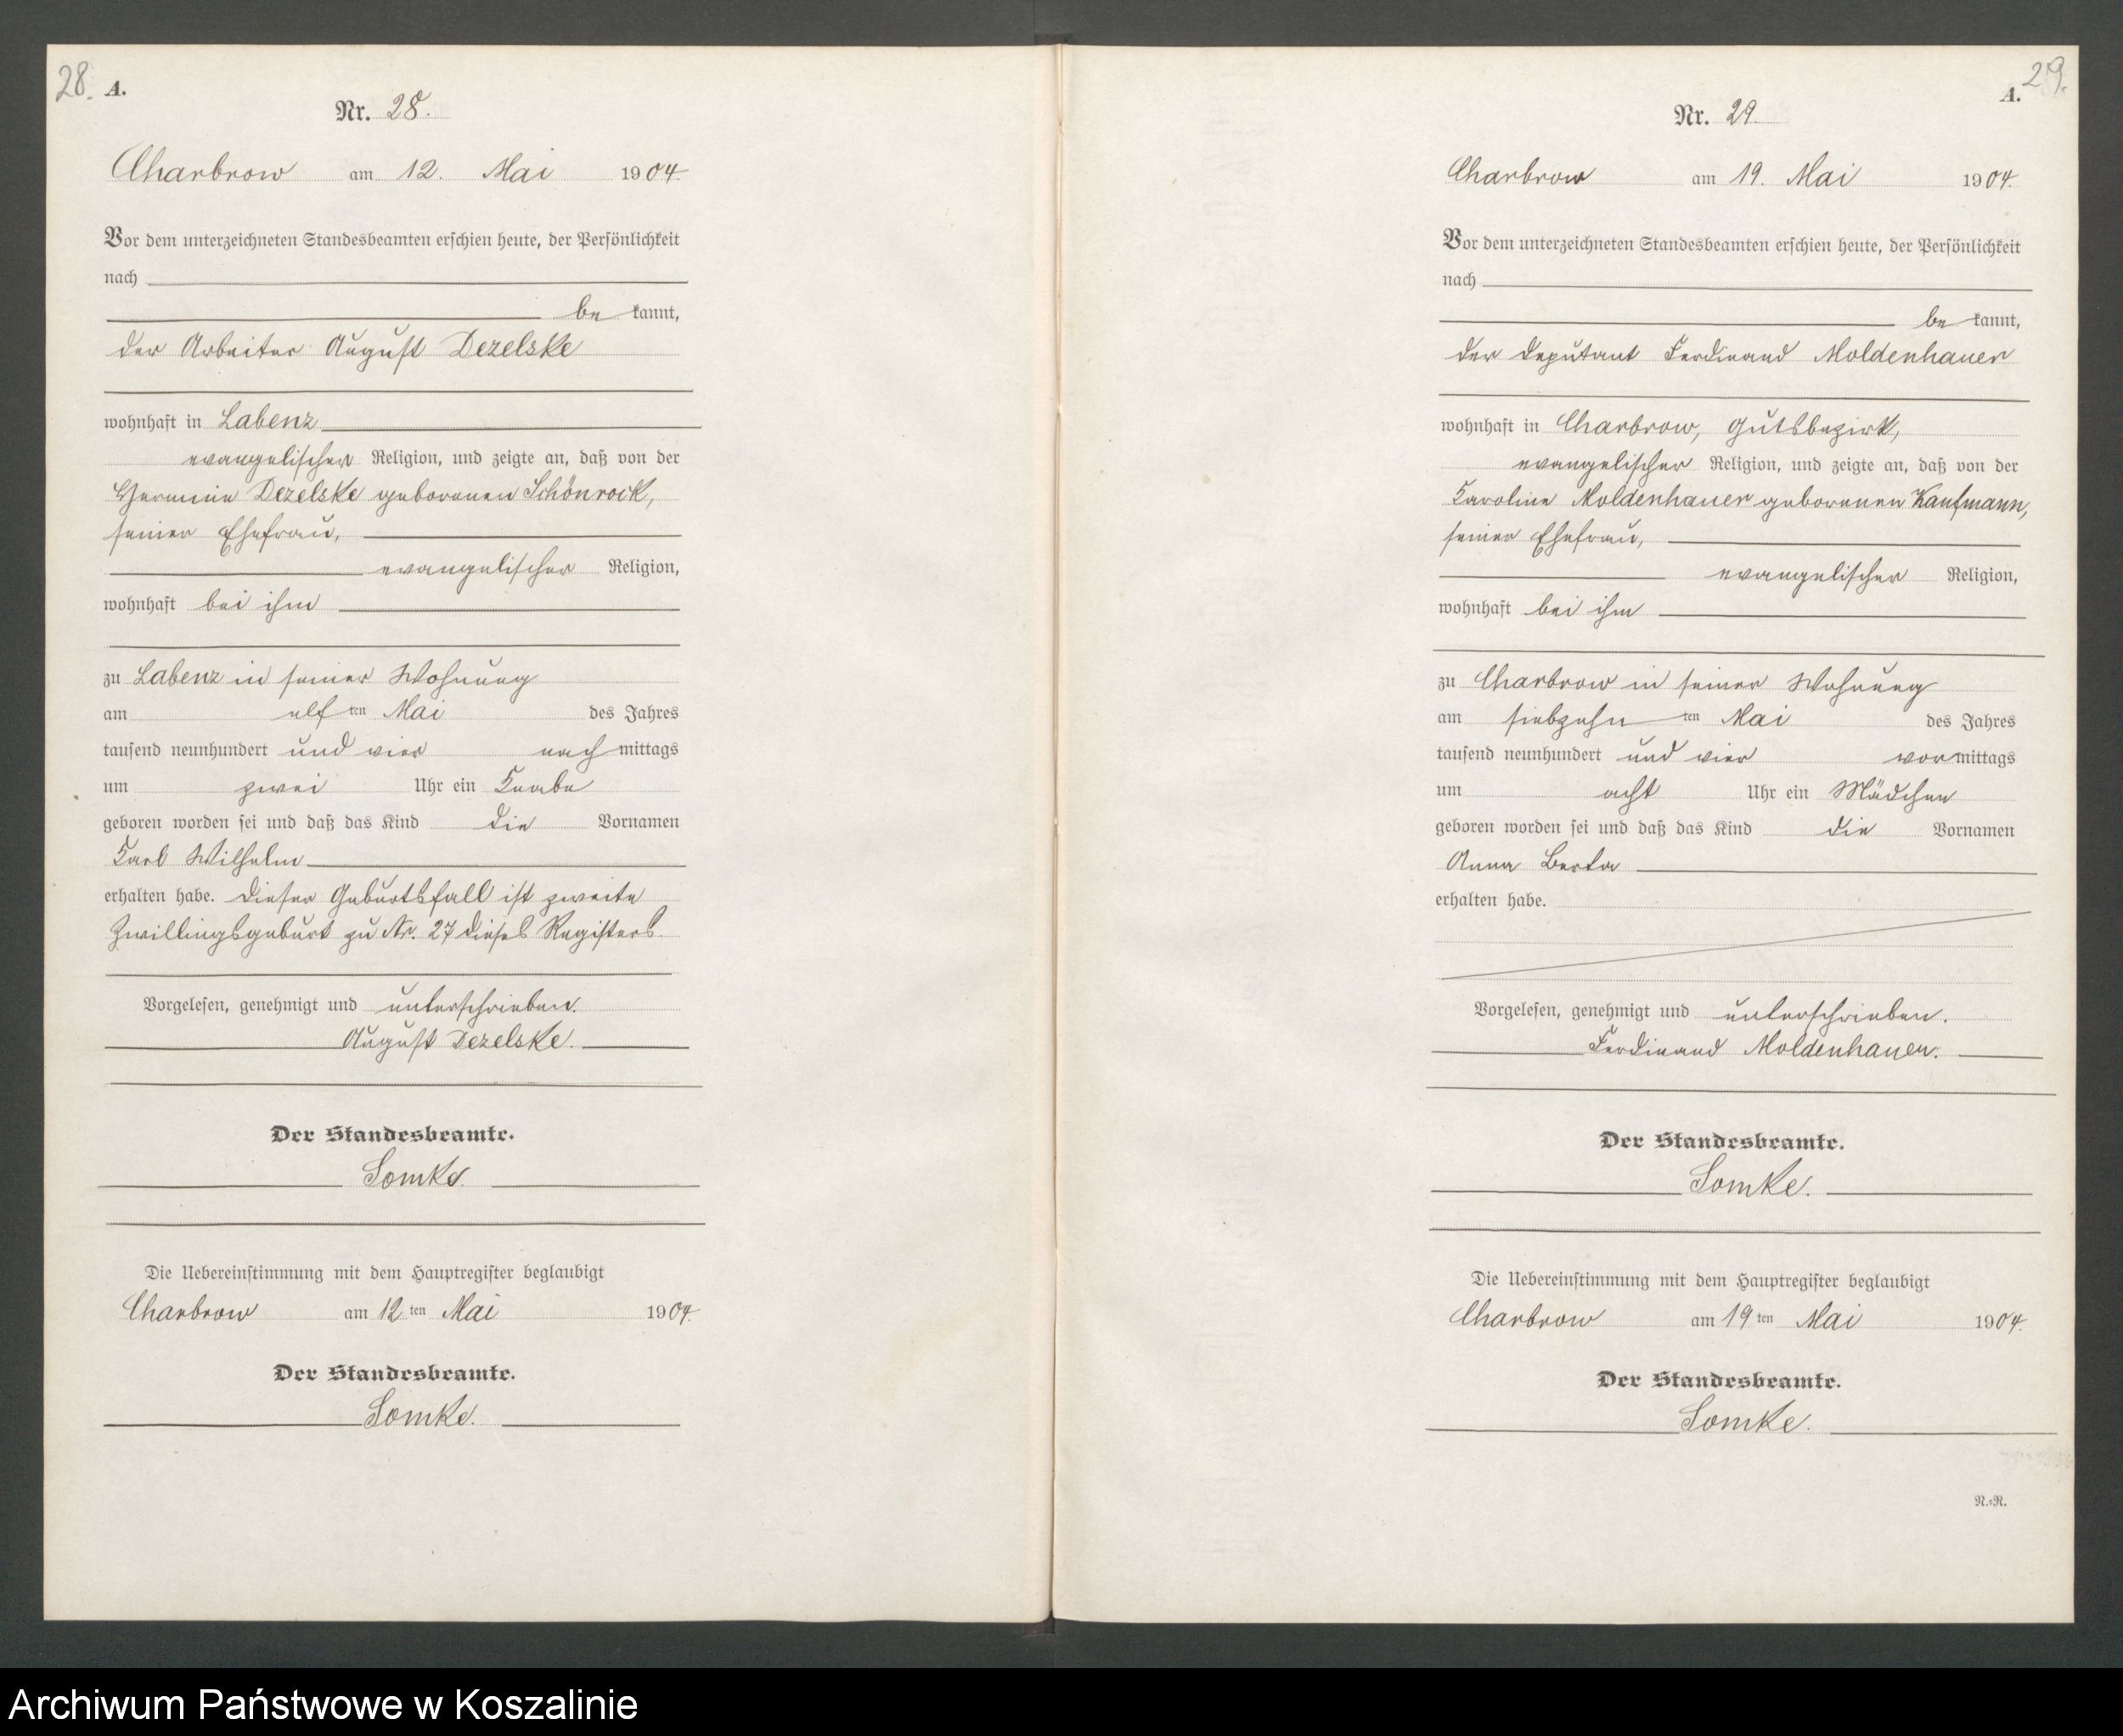 28.
A.
Nr. 28.
Charbrow am 12. Mai 1904.
Vor dem unterzeichneten Standesbeamten erschien heute, der Persönlichkeit
nach
bekannt,
der Arbeiter August Dezelske
wohnhaft in Labenz
evangelischer Religion, und zeigte an, daß von der
Hermine Dezelske geborenen Schönrock,
seiner Ehefrau,
evangelischer Religion,
wohnhaft bei ihm
zu Labenz in seiner Wohnung
am elf ten Mai des Jahres
tausend neunhundert und vier nachmittags
um zwei Uhr ein Knabe
geboren worden sei und daß das Kind die Vornamen
Karl Wilhelm
erhalten habe. Dieser Geburtsfall ist zweite
Zwillingsgeburt zu Nr. 27 dieses Registers.
Vorgelesen, genehmigt und unterschrieben.
August Dezelske.
Der Standesbeamte.
Somke.
Die Uebereinstimmung mit dem Hauptregister beglaubigt
Charbrow am 12 ten Mai 1904.
Der Standesbeamte.
Somke.
29.
A.
Nr. 29.
Charbrow am 19. Mai 1904.
Vor dem unterzeichneten Standesbeamten erschien heute, der Persönlichkeit
nach
bekannt,
der Deputant Ferdinand Moldenhauer
wohnhaft in Charbrow, Gutsbezirk,
evangelischer Religion, und zeigte an, daß von der
Karoline Moldenhauer geborenen Kaufmann,
seiner Ehefrau,
evangelischer Religion,
wohnhaft bei ihm
zu Charbrow in seiner Wohnung
am siebzehn ten Mai des Jahres
tausend neunhundert und vier vormittags
um acht Uhr ein Mädchen
geboren worden sei und daß das Kind die Vornamen
Anna Berta
erhalten habe.
Vorgelesen, genehmigt und unterschrieben.
Ferdinand Moldenhauer.
Der Standesbeamte.
Somke.
Die Uebereinstimmung mit dem Hauptregister beglaubigt
Charbrow am 19 ten Mai 1904.
Der Standesbeamte.
Somke.
N.=R.
Archiwum Państwowe w Koszalinie